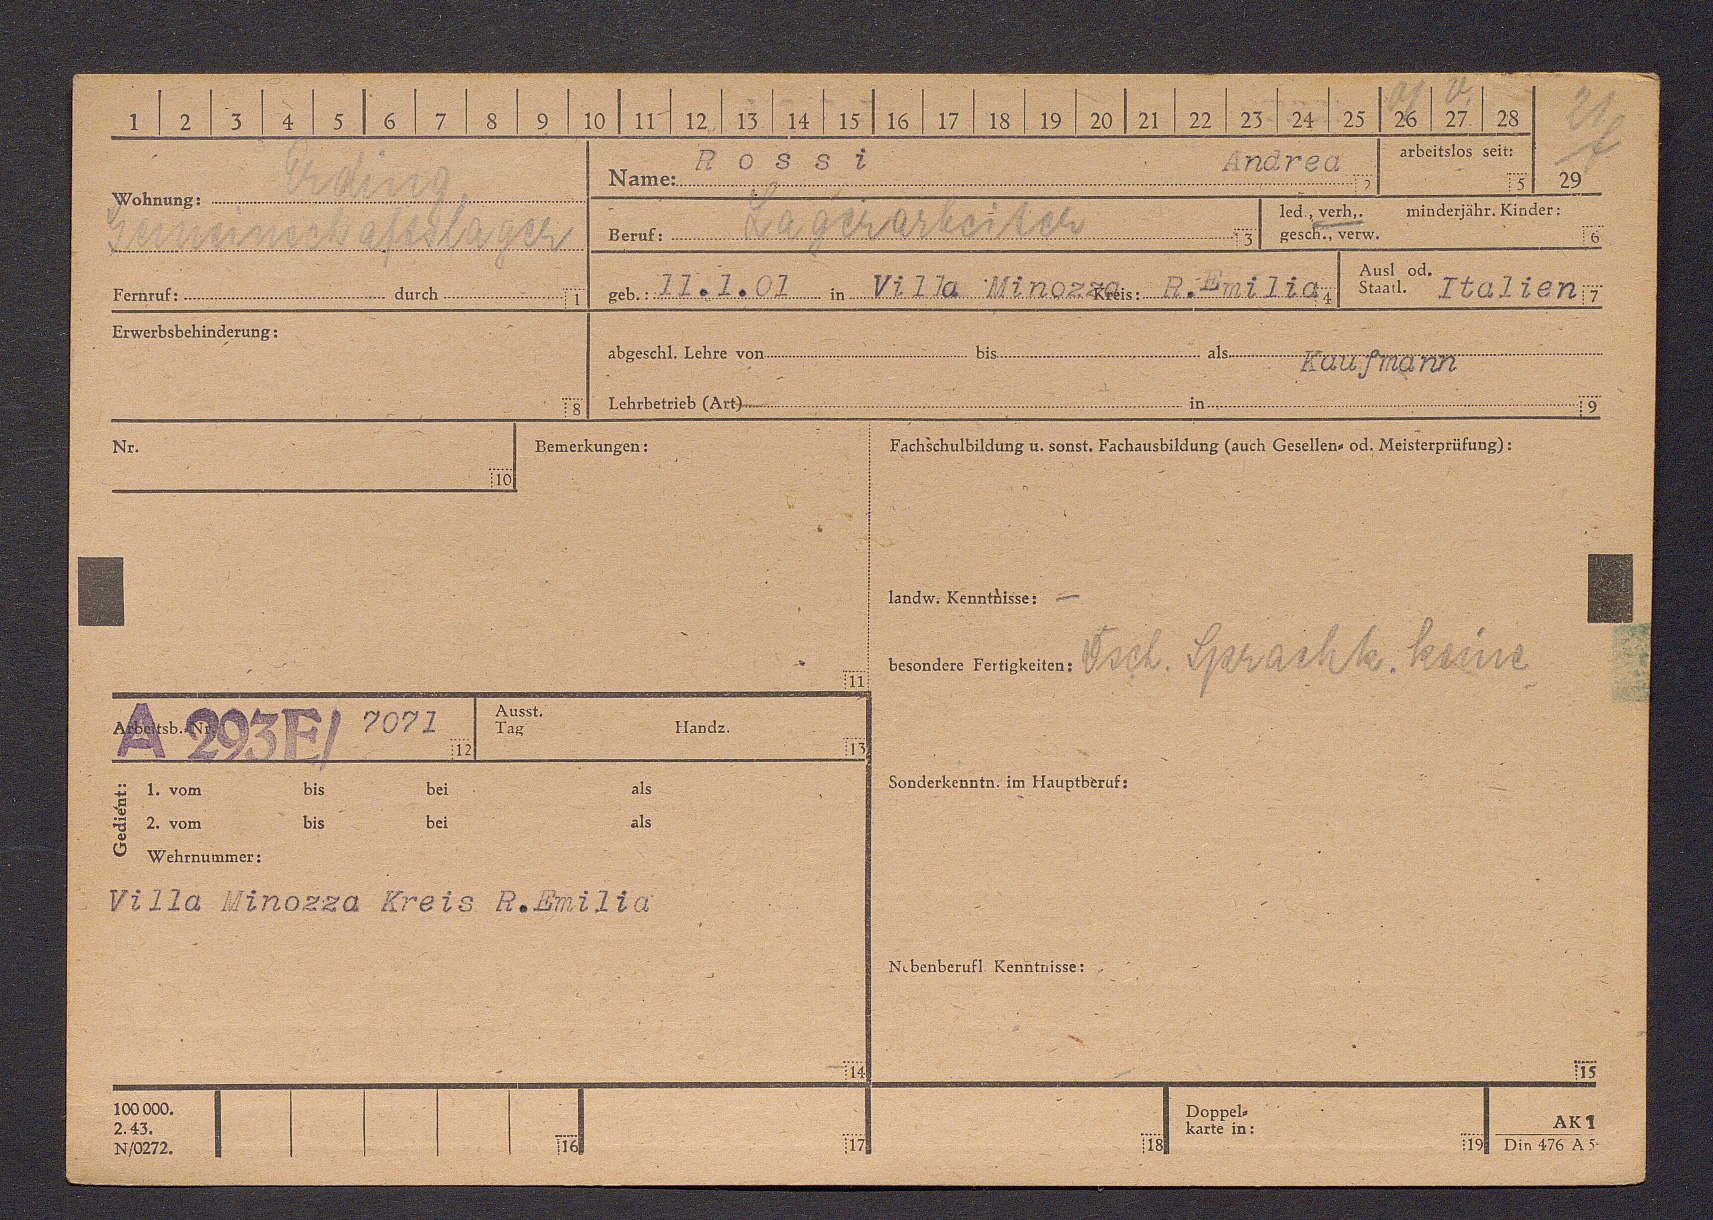 1 2 3 4 5 6 7 8 9 10 11 12 13 14 15 16 17 18 19 20 21 22 23 24 25 26 27 28
29
Wohnung: Erding,
Gemeinschaftslager
Fernruf: durch 1
Name: Rossi Andrea 2
arbeitslos seit: 5
Beruf: Lagerarbeiter 3
led., verh., minderjähr. Kinder:
gesch., verw. 6
geb.: 11.1.01 in Villa Minozza Kreis: R.Emilia 4
Ausl od.
Staatl. Italien 7
Erwerbsbehinderung: 8
abgeschl. Lehre von bis als Kaufmann
Lehrbetrieb (Art) in 9
Nr. 10
Bemerkungen: 11
Fachschulbildung u. sonst. Fachausbildung (auch Gesellen- od. Meisterprüfung):
landw. Kenntnisse: –
besondere Fertigkeiten: Dsch. Sprachk. keine
Arbeitsb.-Nr. A 293E/ 7071 12
Ausst.
Tag Handz. 13
Gedient:
1. vom bis bei als
2. vom bis bei als
Wehrnummer:
Villa Minozza Kreis R.Emilia
14
Sonderkenntn. im Hauptberuf:
Nebenberufl. Kenntnisse:
15
100 000.
2. 43.
N/0272.
16 17 18
Doppel-
karte in: 19
AK 1
Din 476 A 5